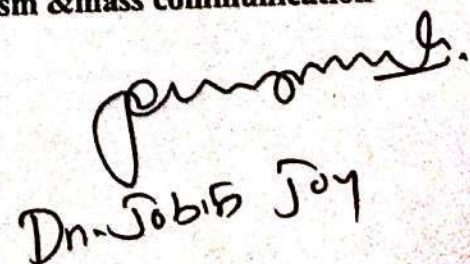 sm &mass communication
Dr. Jobin Joy